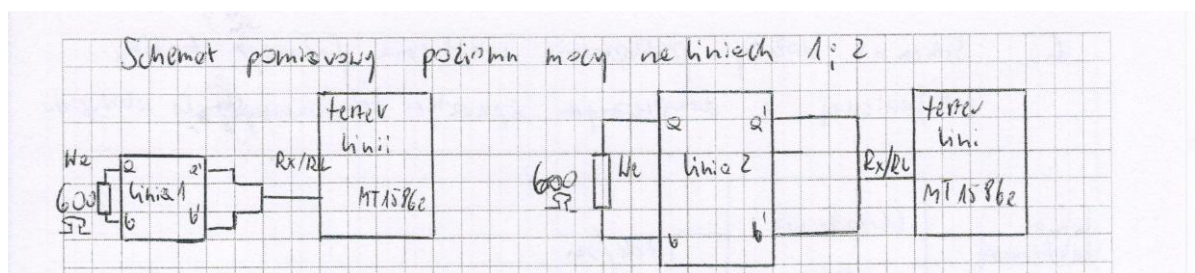 Schemat pomiarowy poziomu mocy na liniach 1 i 2
We
600
Ω
a a'
linia 1
b b'
Rx/RL
tester
linii
MT1586z
600
Ω
We
a a'
linia 2
b b'
Rx/RL
tester
linii
MT1586z